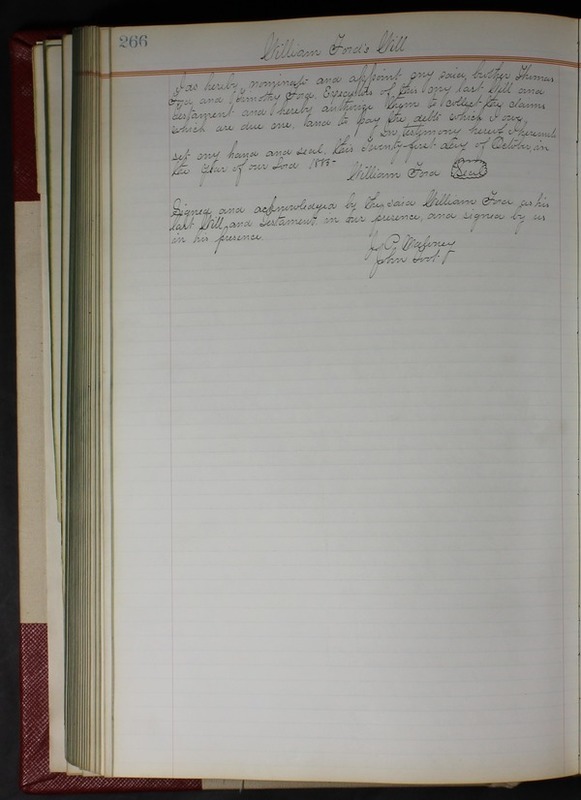 266
William Ford's Will
I do hereby nominate and appoint my said brother Thomas
Ford and Timothy Ford, Executors of this my last Will and
testament and hereby authorize them to collect the claims
which are due me, and to pay the debts which I owe,
In testimony hereof I hereunto
set my hand and seal, this Twenty-first day of October, in
the Year of our Lord 1883-
William Ford (Seal)
Signed and acknowledged by the said William Ford as his
last Will and testament in our presence, and signed by us
in his presence
J. P.
John